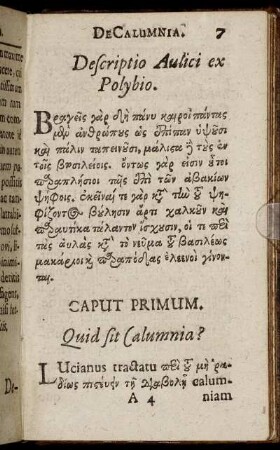 DE CALUMNIA. 7
Descriptio Aulici ex
Polybio.
Βραχεῖς γὰρ δὴ πάνυ καιροὶ πάντας
μὲν ἀνθρώπους ὡς ἐπίπαν ὑψοῦσι
καὶ πάλιν ταπεινοῦσι, μάλιστα ἢ τοὺς ἐν
τοῖς βασιλείοις. ὄντως γάρ εἰσιν οὗτοι
παραπλήσιοι ταῖς ἐπὶ τῶν ἀβακίων
ψήφοις. ἐκεῖναί τε γὰρ κτ τὴν τοῦ ψη-
φίζοντος βούλησιν ἄρτι χαλκοῦν καὶ
παραυτίκα τάλαντον ἴσχυσιν, οἵ τε περὶ
τὰς αὐλὰς κτ τὸ νεῦμα τοῦ βασιλέως
μακάριοι καὶ παραπόδας ἐλεεινοὶ γίνον-
ται.
CAPUT PRIMUM.
Quid sit Calumnia?
LUcianus tractatu περὶ τοῦ μὴ ῥᾳ-
δίως πιστεύειν τῇ διαβολῇ calum-
A 4 niam
De-